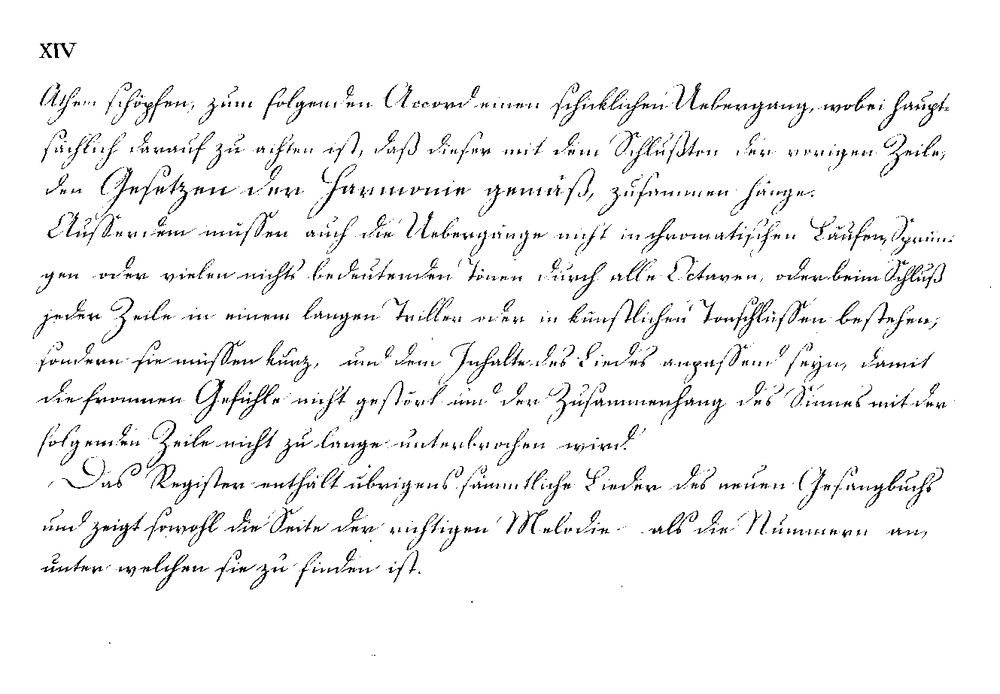 XIV
Athem schöpfen, zum folgenden Accord einen schicklichen Uebergang, wobei haupt-
sächlich darauf zu achten ist, daß dieser mit dem Schlußton der vorigen Zeile,
den Gesetzen der Harmonie gemäß, zusammen hänge.
Ausserdem müssen auch die Uebergänge nicht in chromatischen Läufen, Sprün-
gen oder vielen nichts bedeutenden Tönen durch alle Octaven, oder beim Schluß
jeder Zeile in einem langen Triller oder in künstlichen Tonschlüssen bestehen,
sondern sie müssen kurz, und dem Inhalte des Liedes anpassend seyn, damit
die frommen Gefühle nicht gestört und der Zusammenhang des Sinnes mit der
folgenden Zeile nicht zu lange unterbrochen wird.
Das Register enthält übrigens sämmtliche Lieder des neuen Gesangbuchs
und zeigt sowohl die Seite der richtigen Melodie als die Nummern an,
unter welchen sie zu finden ist.